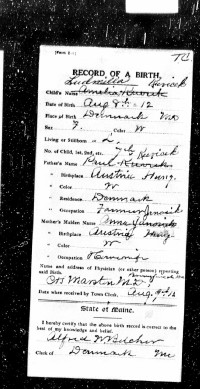 [Form B.]
RECORD OF A BIRTH.
Ludmilla Kivicek
Child's Name
Date of Birth Aug 8th 12
Place of Birth Denmark Me
Sex F. Color W
Living or Stillborn L.
No. of Child, 1st, 2nd, etc., 7th
Father's Name Paul
" Birthplace Austria Hung.
" Color W
" Residence Denmark
" Occupation Farmer
Mother's Maiden Name Anna
" Birthplace Austria Hung
" Color W
" Occupation
Name and address of Physician (or other person) reporting
said Birth,
Date when received by Town Clerk, Aug 12
State of Maine.
I hereby certify that the above birth record is correct to the
best of my knowledge and belief.
Alfred W Belcher
Clerk of Denmark Me